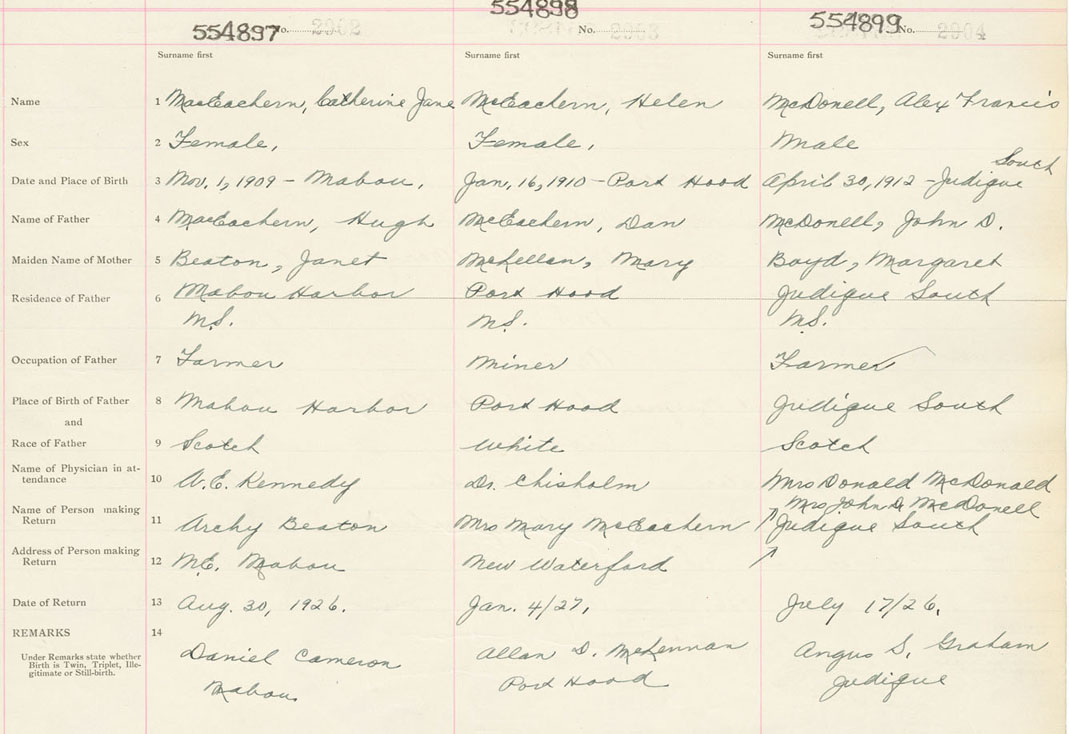 554897 No. 2962 554898 No. 2963 554899 No. 2964
Surname first Surname first Surname first
Name 1 MacEachern, Catherine Jane McEachern, Helen McDonell, Alex Francis
Sex 2 Female, Female, Male
South
Date and Place of Birth 3 Nov. 1, 1909 - Mabou, Jan, 16, 1910 - Port Hood April 30, 1912 - Judique
Name of Father 4 MacEachern, Hugh McEachern, Dan McDonell, John D.
Maiden Name of Mother 5 Beaton, Janet McLellan, Mary Boyd, Margaret
Residence of Father 6 Mabou Harbor Port Hood Judique South
N.S. N.S. N.S.
Occupation of Father 7 Farmer Miner Farmer
Place of Birth of Father 8 Mabou Harbor Port Hood Judique South
and
Race of Father 9 Scotch White Scotch
Name of Physician in at-
tendance 10 A.E. Kennedy Dr. Chisholm Mrs Donald McDonald
Name of Person making Mrs John D. McDonell
Return 11 Archy Beaton Mrs Mary McEachern Judique South
Address of Person making
Return 12 Mabou New Waterford
Date of Return 13 Aug. 30, 1926. Jan. 4/27, July 17/26,
REMARKS 14
Under Remarks state whether
Birth is Twin, Triplet, Ille-
gitimate or Still-birth.
Daniel Cameron Allan D. McKennan Angus S. Graham
Mabou Port Hood Judique